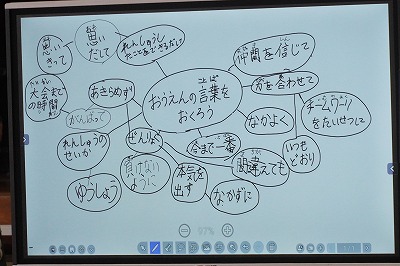 思い
きって
思い
だして
れんしゅうし
たことをできるだけ
仲間を信じて
大会まで
の時間
あきらめず
おうえんの言葉を
おくろう
力を合わせて
チームワーク
をたいせつに
がんばって
れんしゅうの
せいか
ぜんりょく
今まで一番
なかよく
いつも
どおり
負けない
ように
本気を
出す
間違えても
ゆうしょう
なかずに
97%